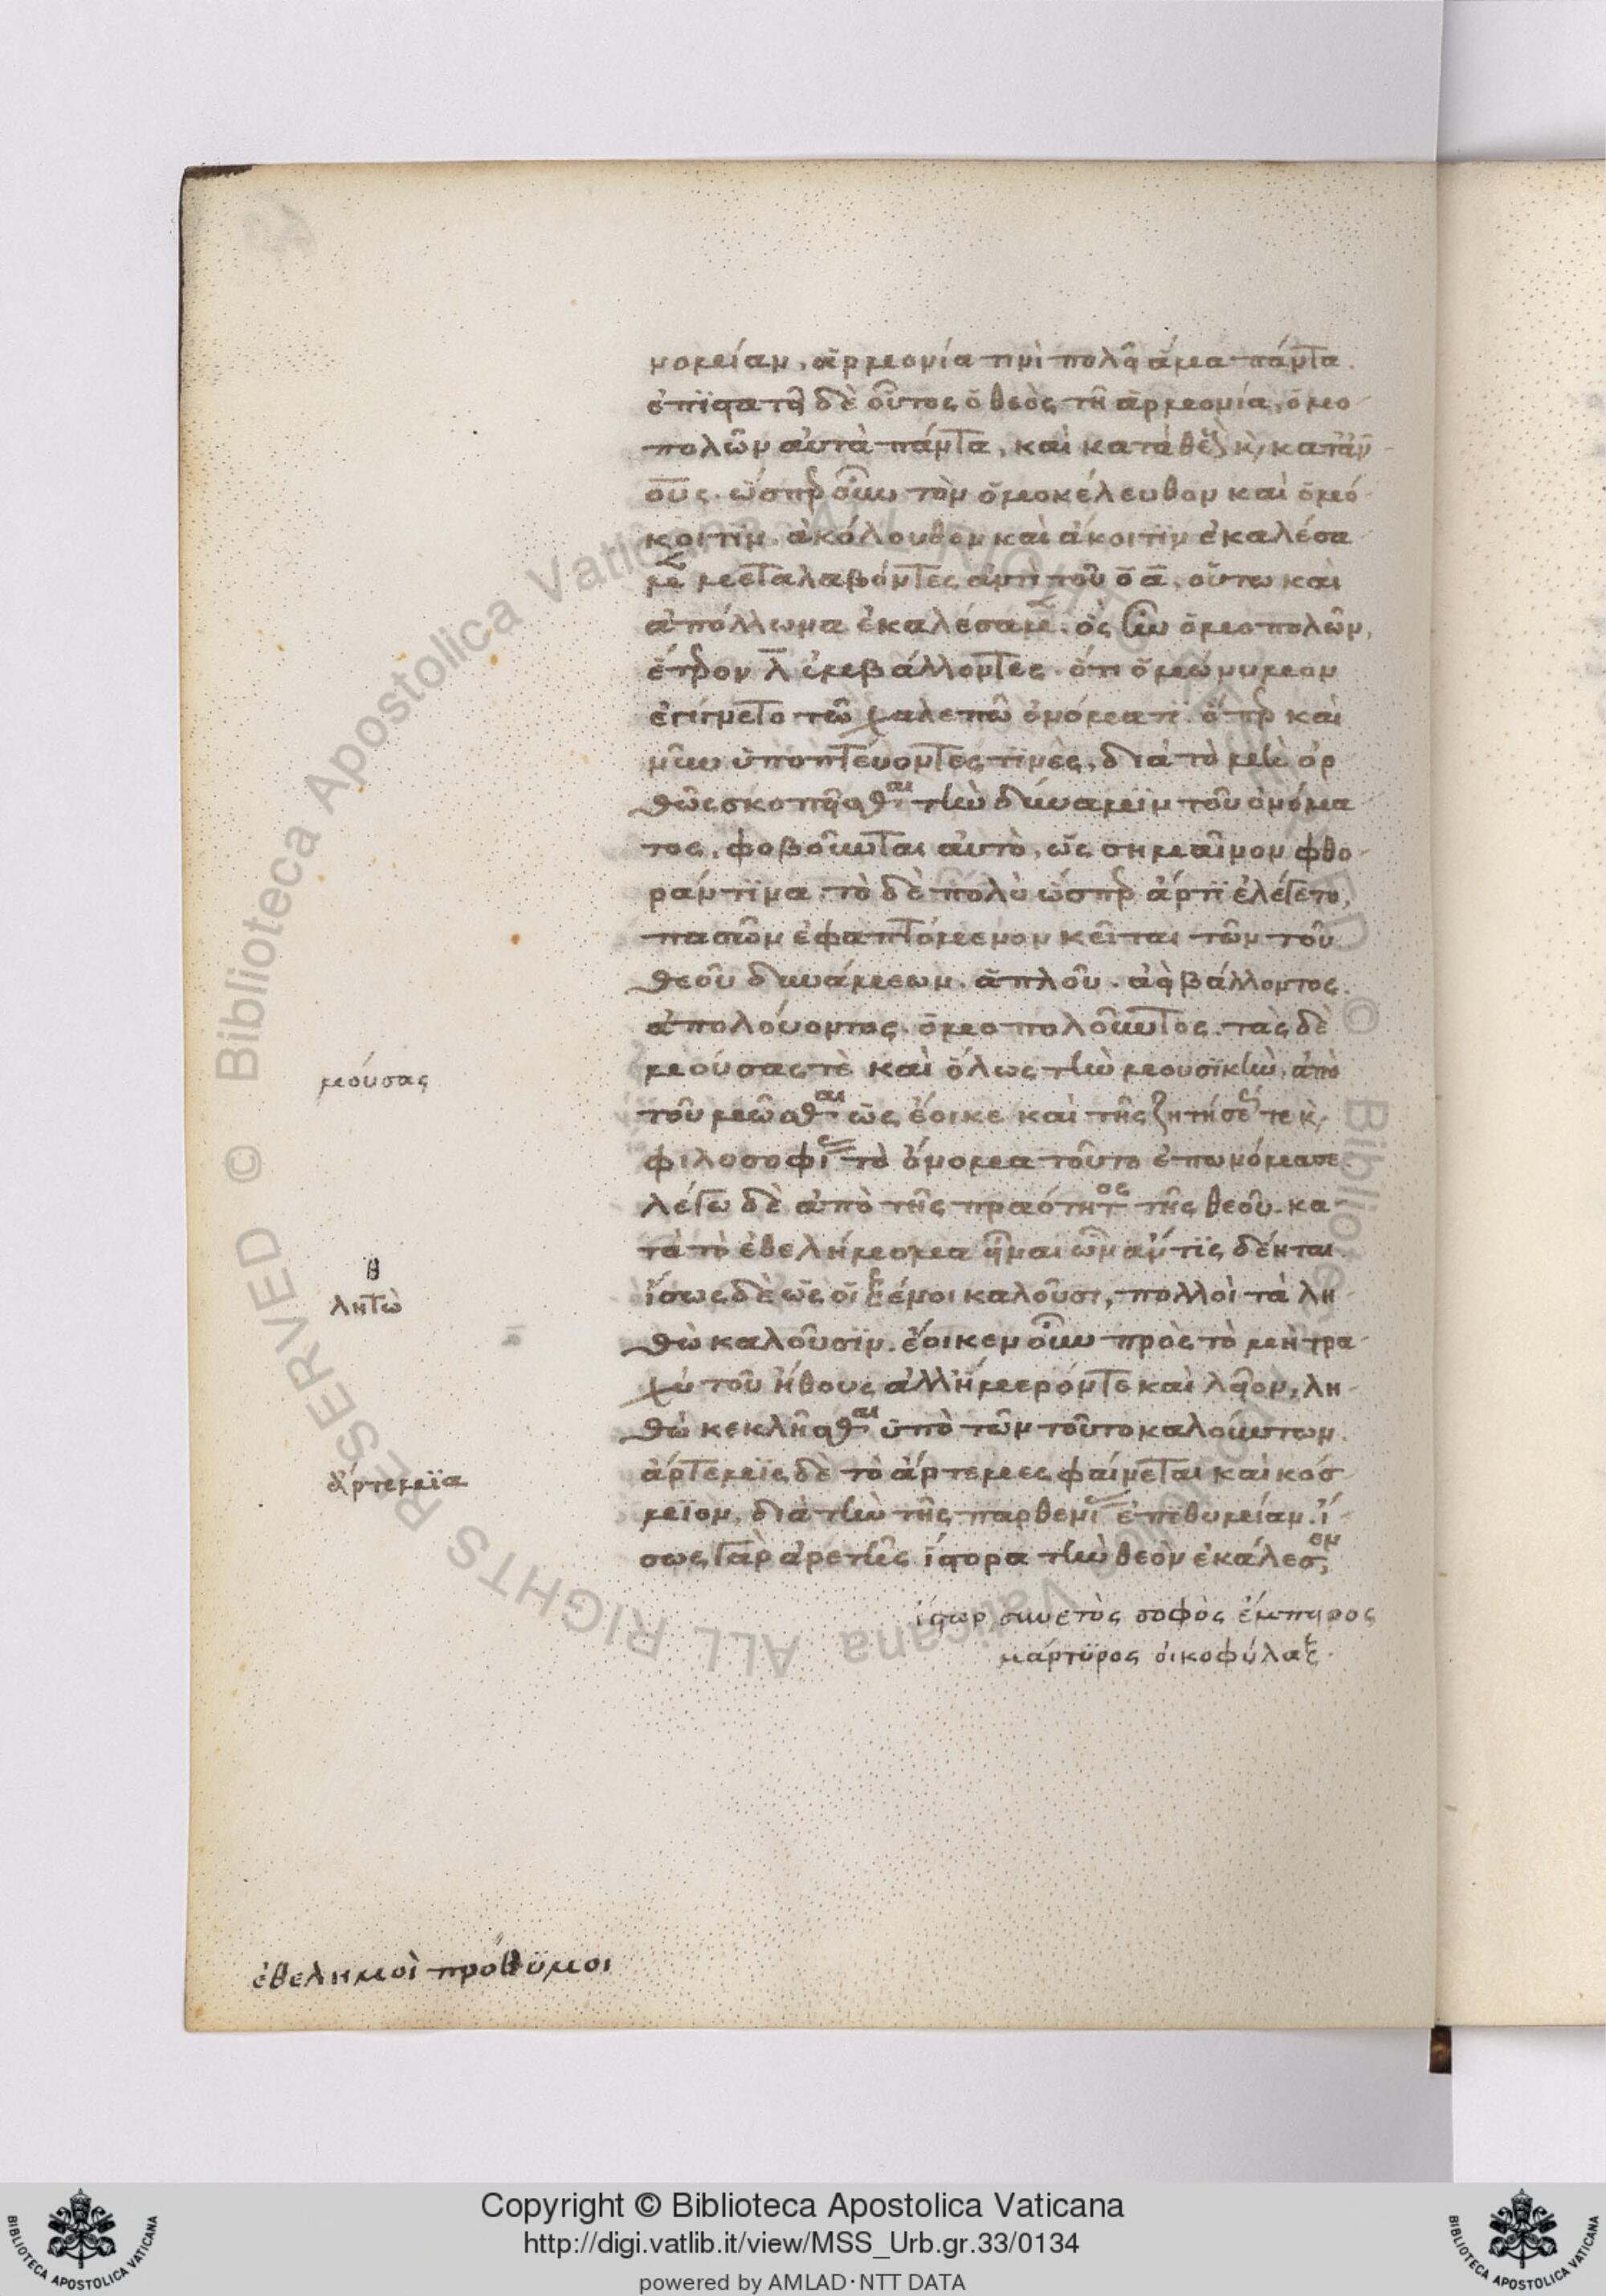 νομίαν, ἁρμονία τινὶ πολεῖ ἅμα πάντα.
ἐπιστατεῖ δὲ οὗτος ὁ θεὸς τῆ ἁρμονία, ὁμο
πολῶν αὐτὰ πάντα, καὶ κατὰ θεοὺς κ κατ' ἀν
ους. ὥσπερ οὖν τὸν ὁμοκέλευθον καὶ ὁμό
κοιτιν. ἀκόλουθον καὶ ἄκοιτιν ἐκαλέσα
μεν μεταλαβόντες ἀντὶ τοῦ ὁ α. οὕτω καὶ
ἀπόλλωνα ἐκαλέσαμεν. ὃς ἦν ὁμοπολῶν,
ἕτερον λ ἐμβάλλοντες. ὅτι ὁμώνυμον
ἐγίγνετο τῶ χαλεπῶ ὀνόματι. ὅπερ καὶ
νῦν ὑποπτεύοντες τινὲς, διὰ τὸ μὴ ὀρ
θῶς σκοπεῖσθαι τὴν δύναμιν τοῦ ὀνόμα
τος, φοβοῦνται αὐτὸ, ὡς σημαῖνον φθο
ράν τινα. τὸ δὲ πολὺ ὥσπερ ἄρτι ἐλέγετο,
πασῶν ἐφαπτόμενον κεῖται τῶν τοῦ
θεοῦ δυνάμεων. ἁπλοῦ. ἀεὶ βάλλοντος.
ἀπολούοντος. ὁμοπολοῦντος. τὰς δὲ
μούσας τὲ καὶ ὅλως τὴν μουσικὴν, ἀπὸ
τοῦ μῶσθαι ὡς ἔοικε καὶ τῆς ζητήσεώς τε κ
φιλοσοφίας τὸ ὄνομα τοῦτο ἐπωνόμασε.
λέγω δὲ ἀπὸ τῆς πραότητος τῆς θεοῦ. κα
τὰ τὸ ἐθελήμονα εἶναι ὧν ἄν τις δέηται.
ἴσως δὲ ὡς οἱ ξένοι καλοῦσι, πολλοὶ τὰ λη
θὼ καλοῦσιν. ἔοικεν οὖν πρὸς τὸ μὴ τρα
χὺ τοῦ ἤθους ἀλλ' ἥμερόν τε καὶ λεῖον, λη
θὼ κεκλῆσθαι ὑπὸ τῶν τοῦτο καλούντων.
ἄρτεμις δὲ τὸ ἀρτεμὲς φαίνεται καὶ κόσ
μιον, διὰ τὴν τῆς παρθενίας ἐπιθυμίαν. ἴ
σως γὰρ ἀρετῆς ἵστορα τὴν θεὸν ἐκάλεσον,
ἵστωρ συνετὸς σοφὸς ἔμπειρος
μάρτυρος οἰκοφύλαξ.
μούσας
θ
λητὼ
ἄρτεμια
ἐθελημοὶ πρόθυμοι
Biblioteca Apostolica Vaticana ALL RIGHTS RESERVED ©
Copyright © Biblioteca Apostolica Vaticana
http://digi.vatlib.it/view/MSS_Urb.gr.33/0134
powered by AMLAD·NTT DATA
BIBLIOTECA APOSTOLICA VATICANA
BIBLIOTECA APOSTOLICA VATICANA